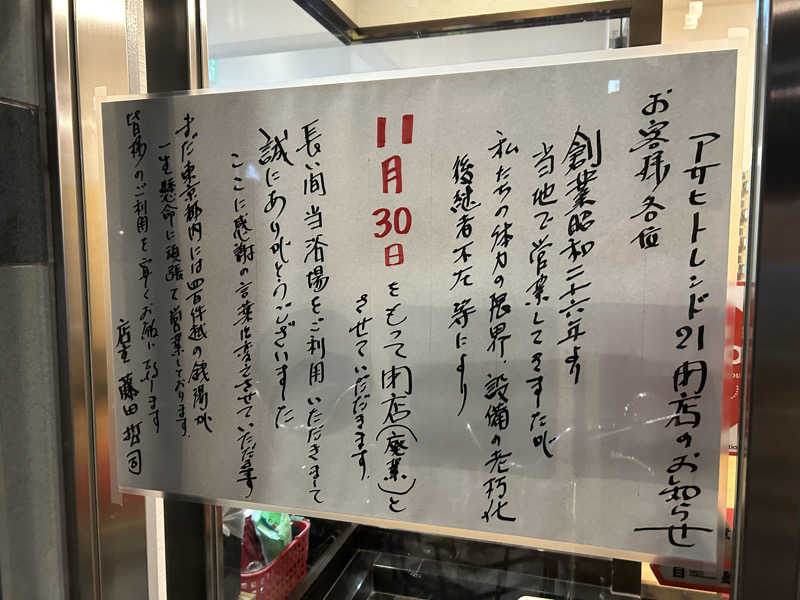 アサヒトレンド21閉店のお知らせ
お客様各位
創業昭和二十六年より
当地で営業してきましたが
私たちの体力の限界、設備の老朽化
後継者不在等により
11月30日をもって閉店(廃業)と
させていただきます。
長い間当浴場をご利用いただきまして
誠にありがとうございました
ここに感謝の言葉に変えさせていただきます
まだ東京都内には四百件越の銭湯が
一生懸命に頑張って営業しております。
皆様のご利用を宜しくお願い致します
店主 藤田哲司